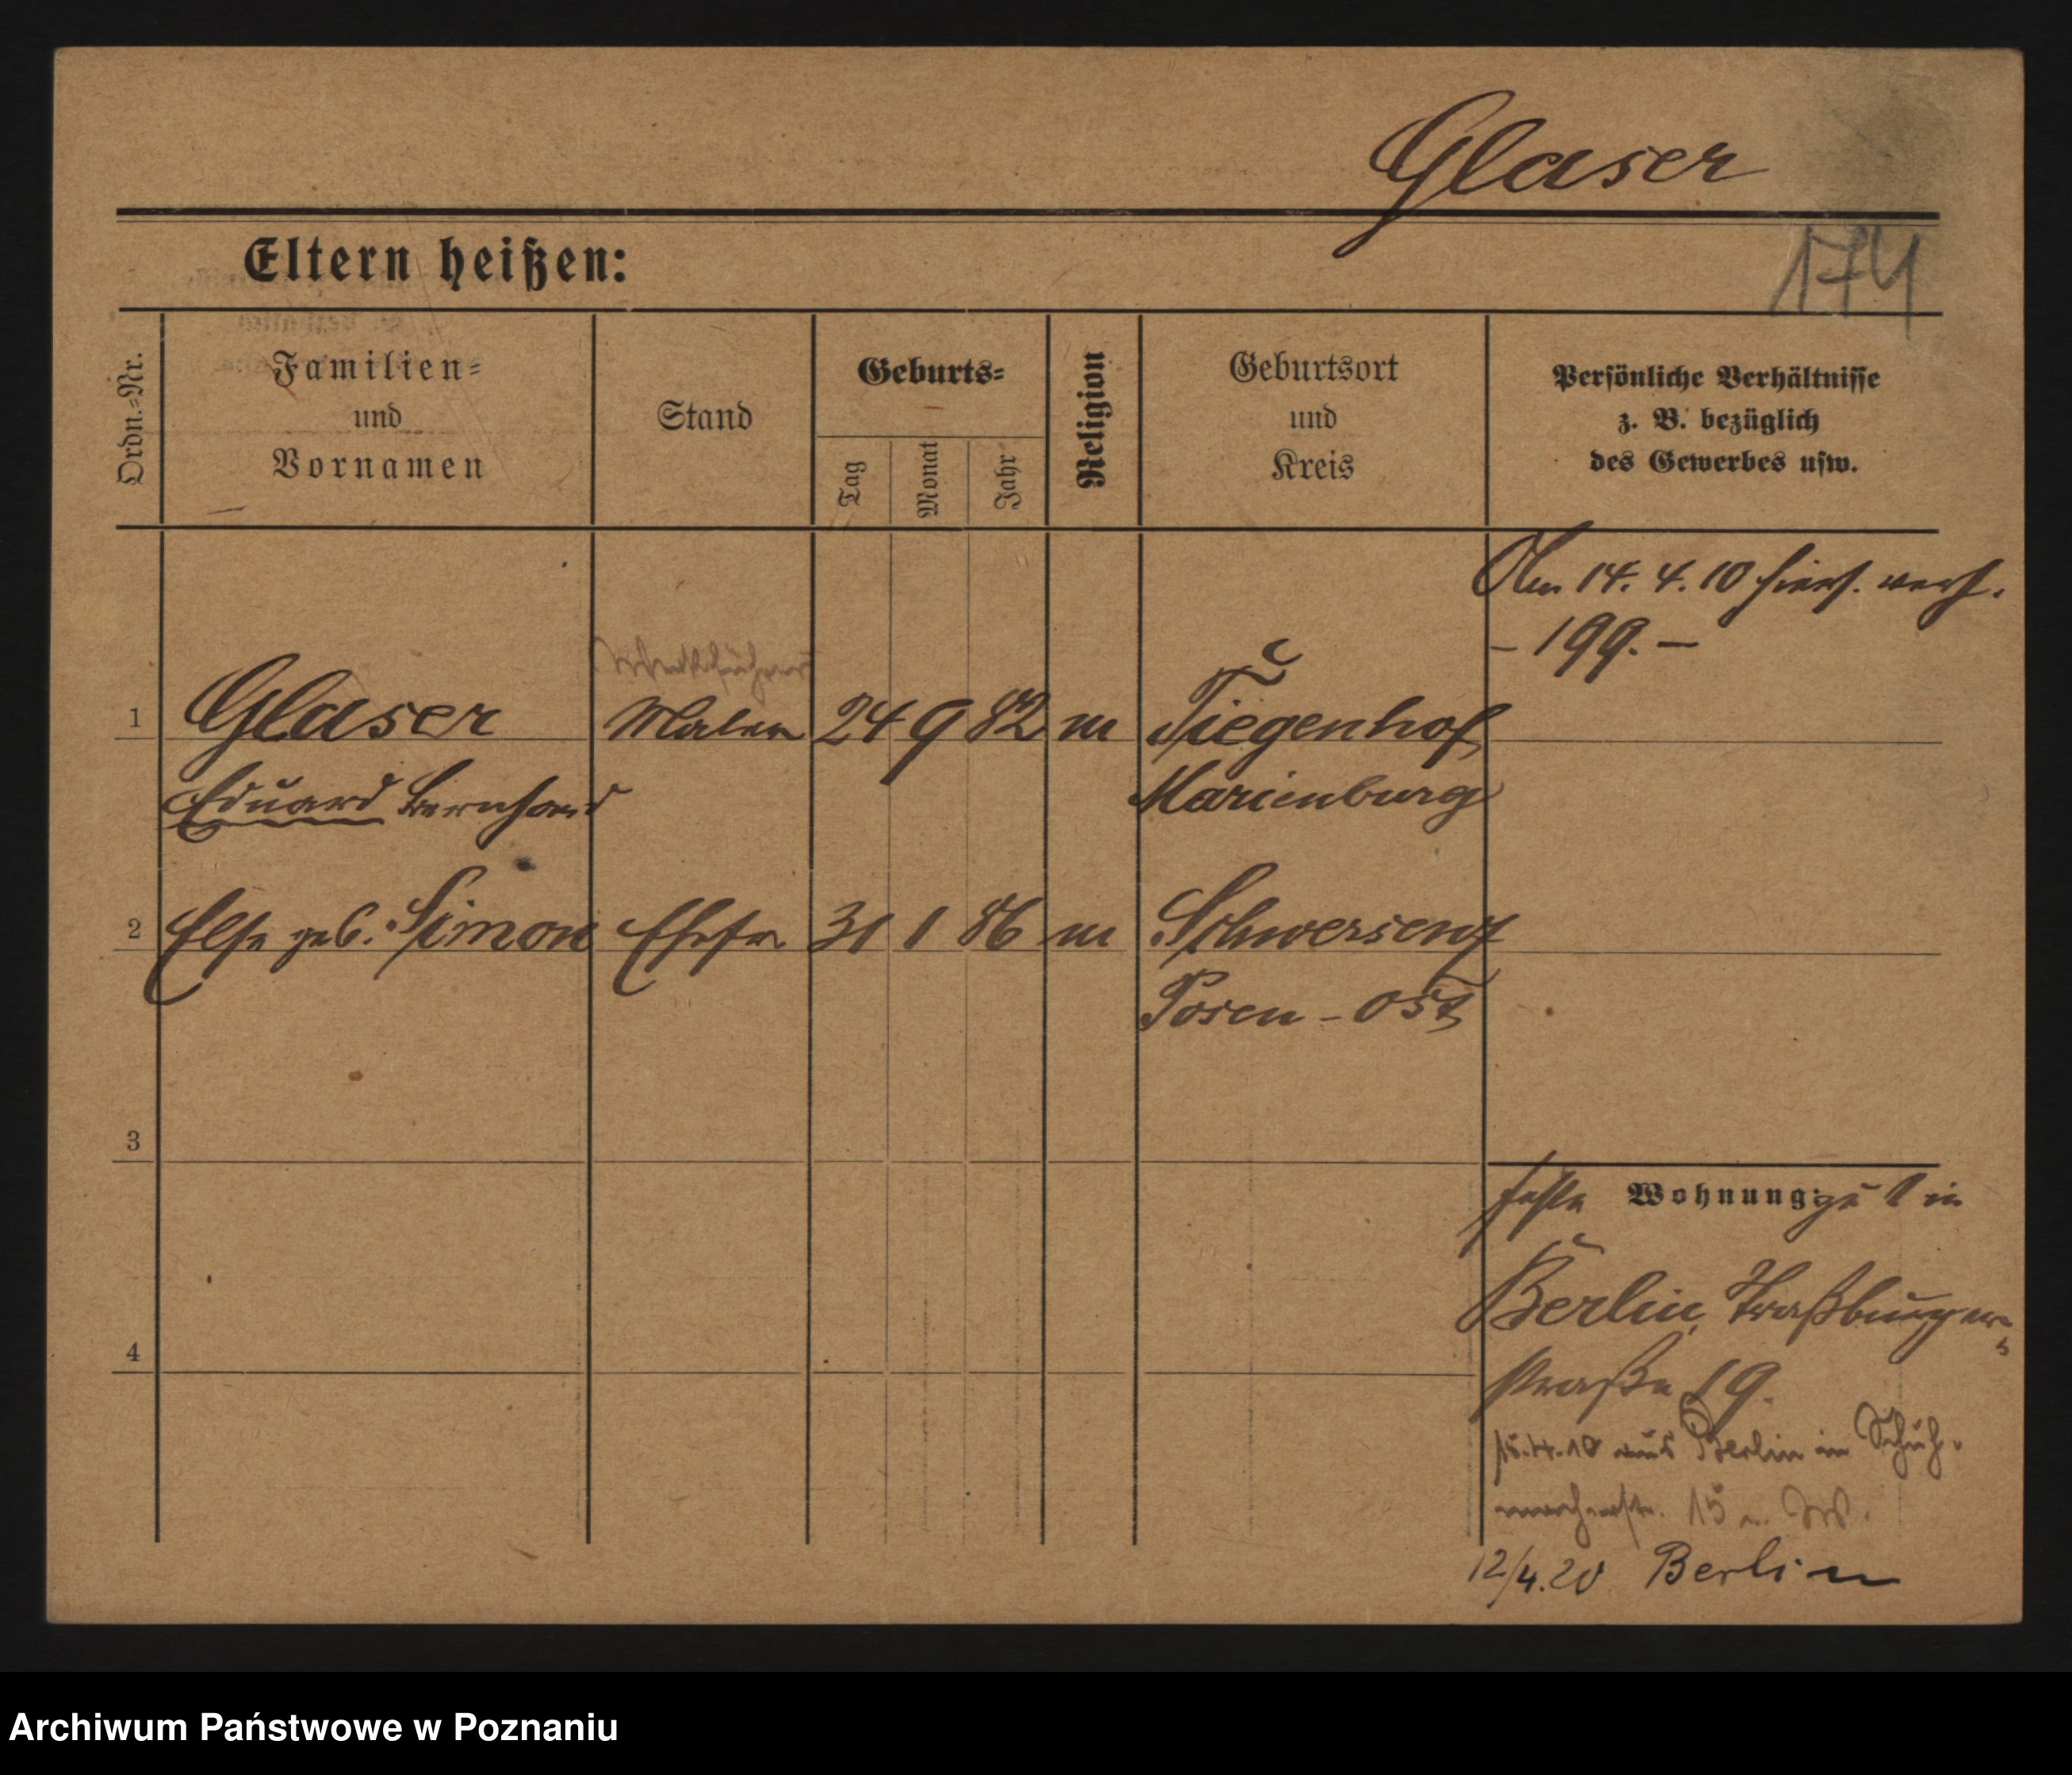 Glaser
174
Eltern heißen:
Ordn.=Nr.
Familien=
und
Vornamen
Stand
Geburts=
Tag
Monat
Jahr
Religion
Geburtsort
und
Kreis
Persönliche Verhältnisse
z. B. bezüglich
des Gewerbes usw.
Am 14. 4. 10 hiers. verh.
- 199. -
1 Glaser Maler 24 9 82 m Tiegenhof
Eduard Bernhard Marienburg
2 Else geb. Simon Ehefr. 31 1 86 m Schwersenz
Posen - Ost
3
Wohnung: zu 1 in
Berlin, Straßburger-
4
straße 19.
15.4.10 aus Berlin in Schuh-
macherstr. 15
12/4.20 Berlin
Archiwum Państwowe w Poznaniu